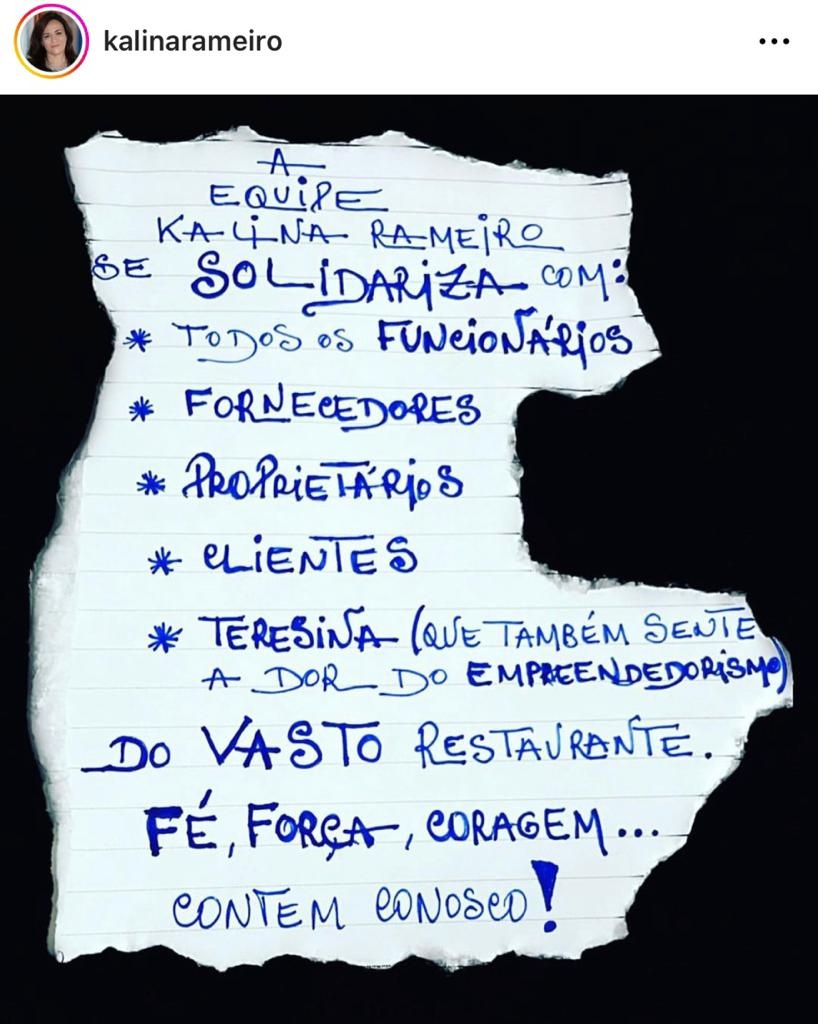 kalinarameiro
A
EQUIPE
KALINA RAMEIRO
SE SOLIDARIZA COM:
* TODOS OS FUNCIONÁRIOS
* FORNECEDORES
* PROPRIETÁRIOS
* CLIENTES
* TERESINA (QUE TAMBÉM SENTE
A DOR DO EMPREENDEDORISMO)
DO VASTO RESTAURANTE.
FÉ, FORÇA, CORAGEM...
CONTEM CONOSCO!